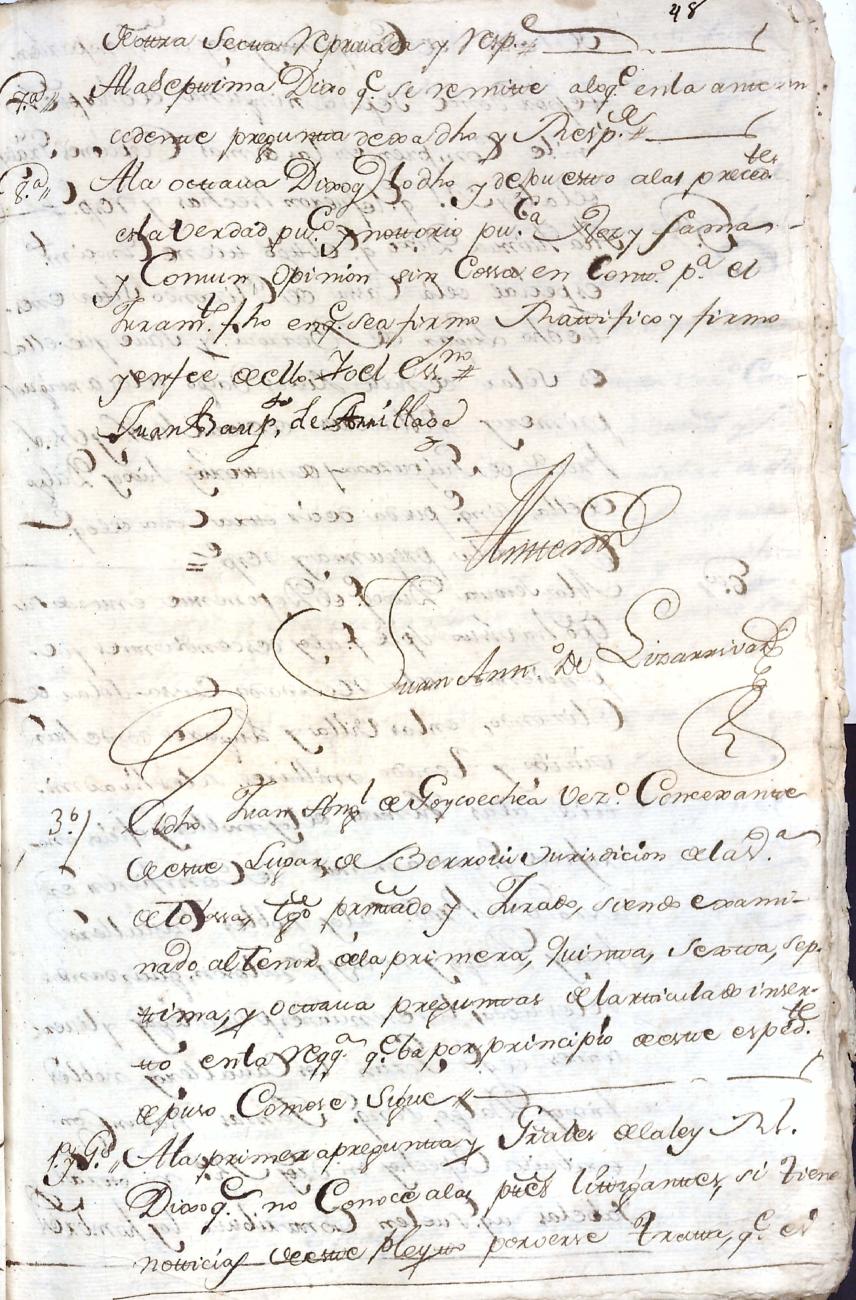 48
de otra Secta reprouada y resp.de
7.a A la Septima Dixo q.e se remite alo q.e en la ante
cedente pregunta dexa dho y Resp.de
8.a A la octaua Dixo q.e lo dho y depuesto a las preced.tes
es la Verdad pu.co y nottorio pu.ca Voz y fama
y Comun Opinion sin Cossa en Cont.o p.a el
Juram.to fho en q.e se afirmo Rattifico y firmo
y en fee de ello Yo el Ess.no
Juan Baup.ta de Arrillaga
Antte mi
Juan Antt.o de Lizarrivar
3.o El dho Juan Ang.l de Goycoechea Vez.o Concexante
de este Lugar de Berroui Jurisdicion de la V.a
de Tolossa, tgo pressentado y Jurado, siendo exami-
nado al tenor de la primera, quinta, sexta, sep-
ttima, y octtaua preguntas del artticulado inser-
tto en la reqq.a q.e ba por principio de este esped.te
depuso Como se Sigue
1.a y G.s A la primera pregunta y Grâles de la ley Rl.
Dixo q.e no Conoce a las ptes littigantes, si tiene
notticias de este pleyto por verse tratta, q.e es